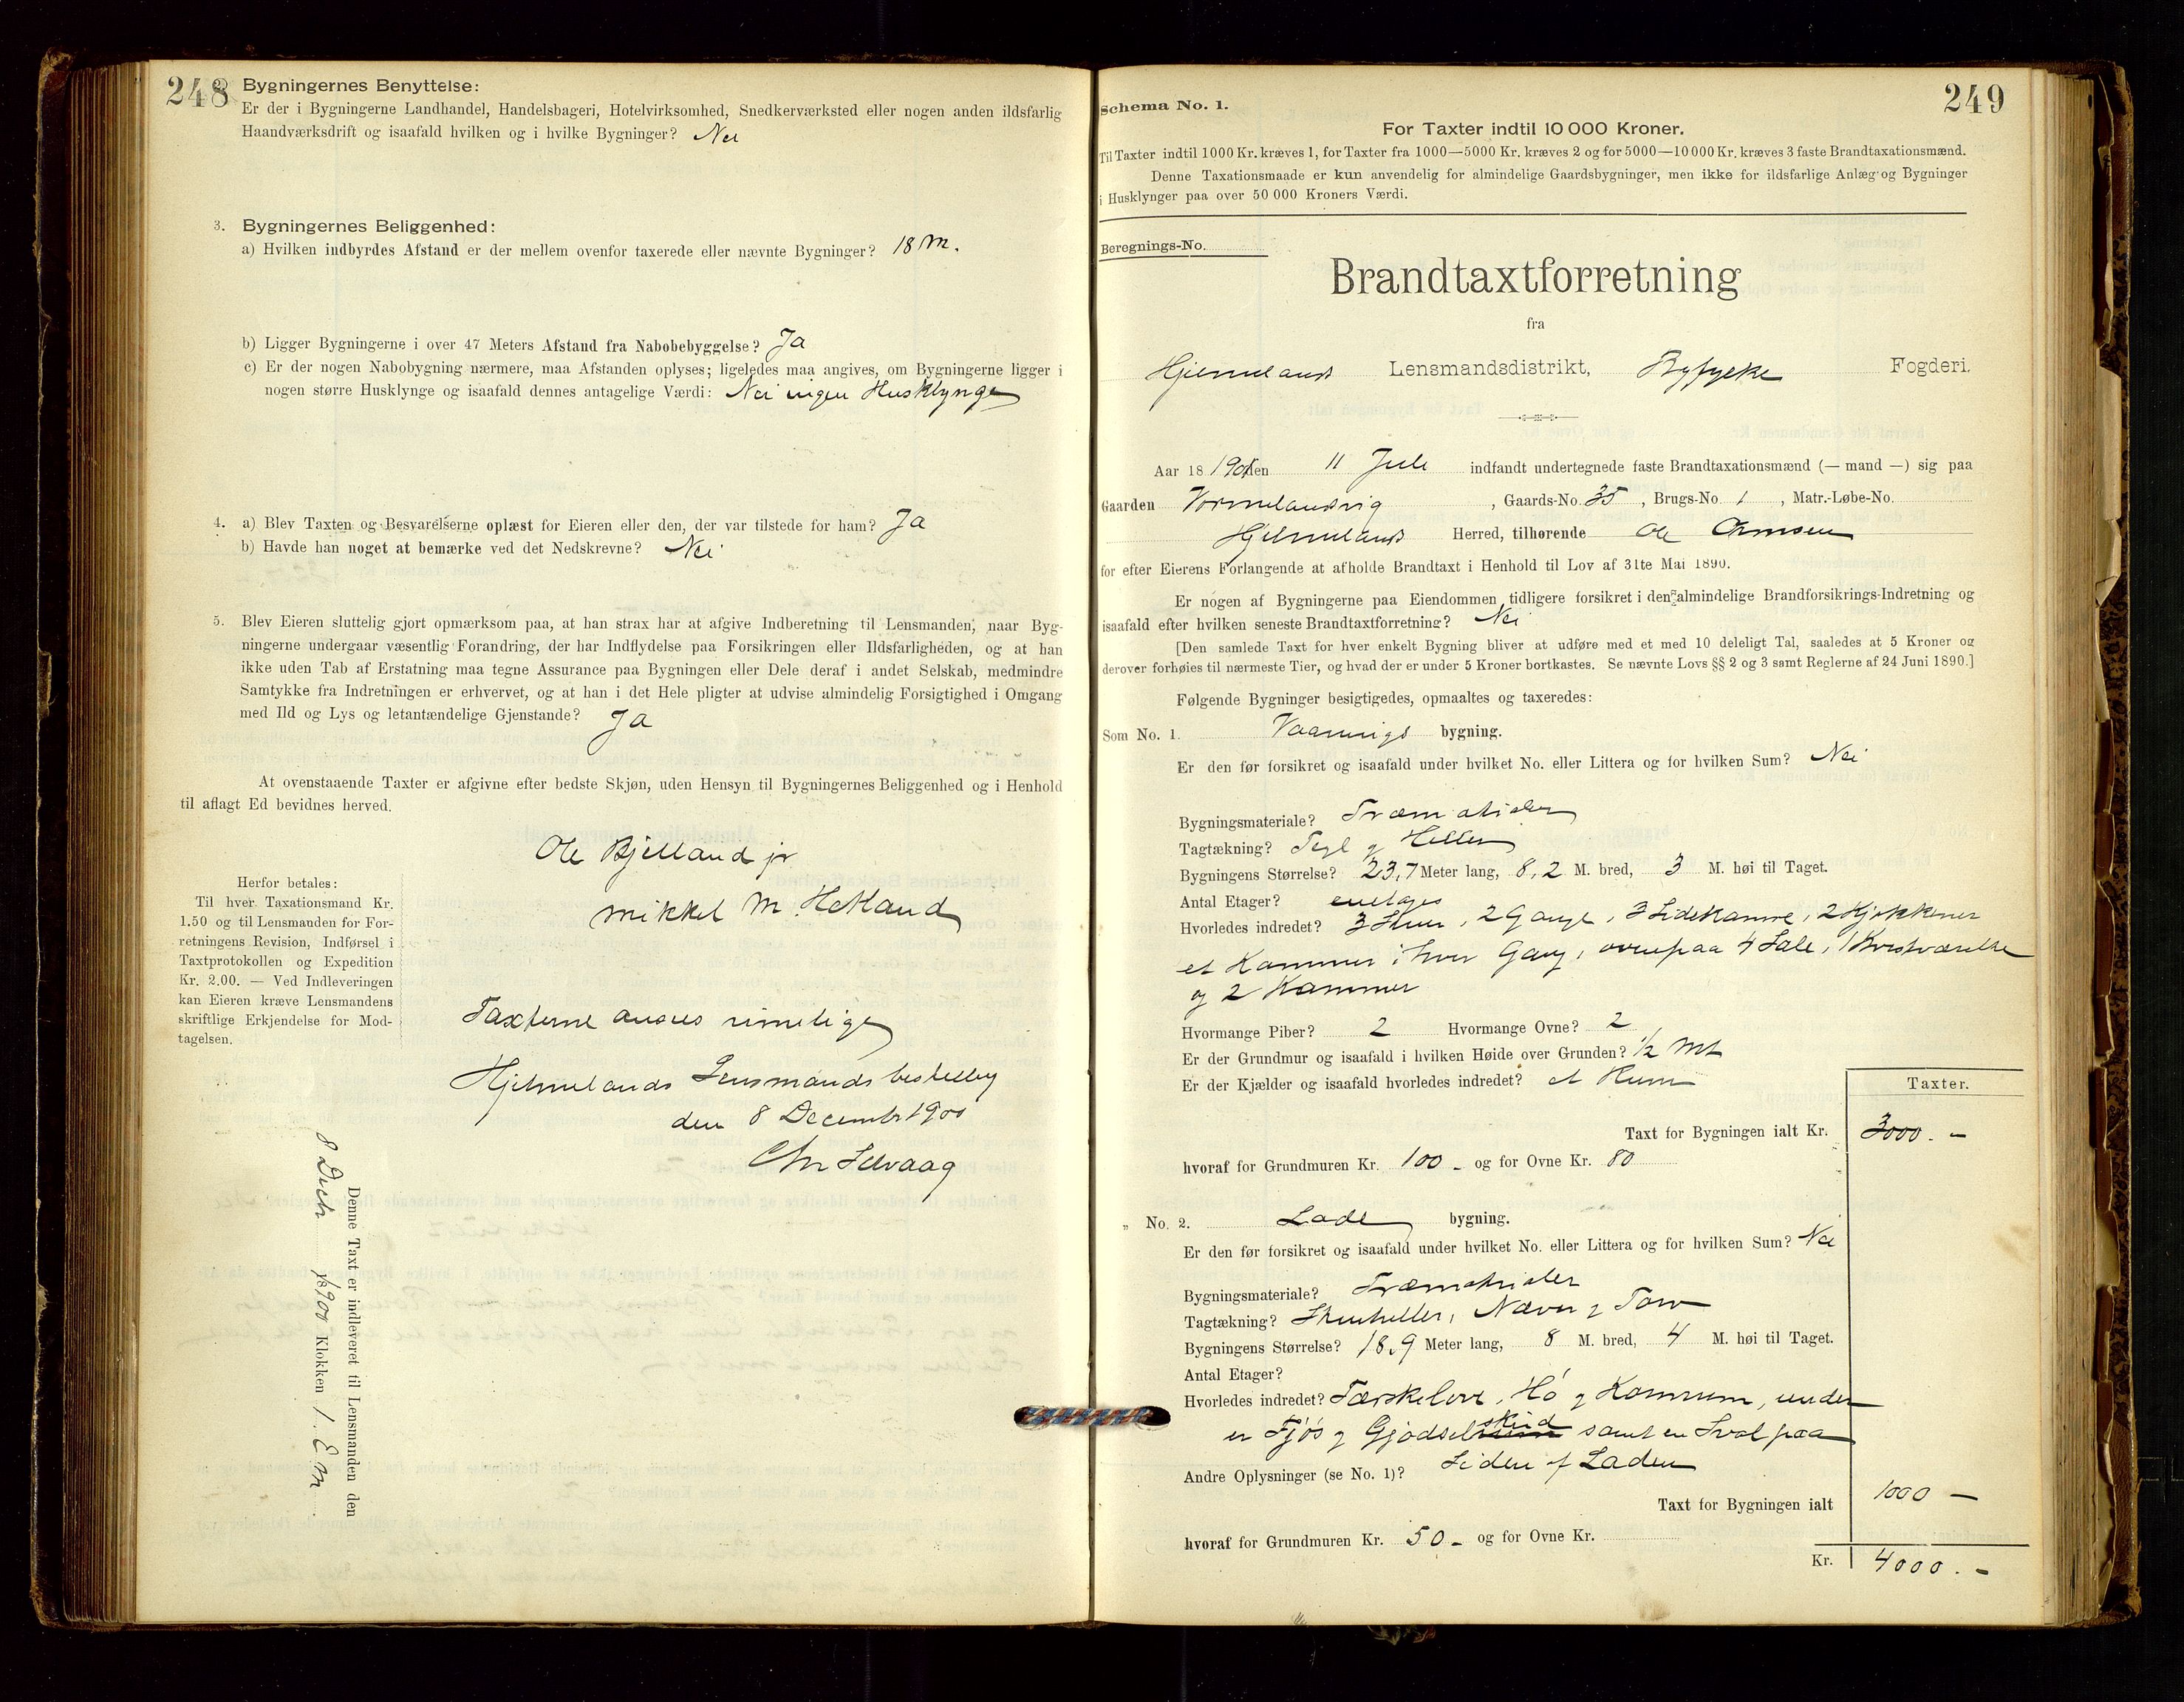 248
Bygningernes Benyttelse:
Er der i Bygningerne Landhandel, Handelsbageri, Hotelvirksomhed, Snedkerværksted eller nogen anden ildsfarlig
Haandværksdrift og isaafald hvilken og i hvilke Bygninger? Nei
3. Bygningernes Beliggenhed:
a) Hvilken indbyrdes Afstand er der mellem ovenfor taxerede eller nævnte Bygninger? 18 m.
b) Ligger Bygningerne i over 47 Meters Afstand fra Nabobebyggelse? Ja
c) Er der nogen Nabobygning nærmere, maa Afstanden oplyses; ligeledes maa angives, om Bygningerne ligger i
nogen større Husklynge og isaafald dennes antagelige Værdi: Nei ingen Husklynge
4. a) Blev Taxten og Besvarelserne oplæst for Eieren eller den, der var tilstede for ham? Ja
b) Havde han noget at bemærke ved det Nedskrevne? Nei
5. Blev Eieren sluttelig gjort opmærksom paa, at han strax har at afgive Indberetning til Lensmanden, naar Byg-
ningerne undergaar væsentlig Forandring, der har Indflydelse paa Forsikringen eller Ildsfarligheden, og at han
ikke uden Tab af Erstatning maa tegne Assurance paa Bygningen eller Dele deraf i andet Selskab, medmindre
Samtykke fra Indretningen er erhvervet, og at han i det Hele pligter at udvise almindelig Forsigtighed i Omgang
med Ild og Lys og letantændelige Gjenstande? Ja
At ovenstaaende Taxter er afgivne efter bedste Skjøn, uden Hensyn til Bygningernes Beliggenhed og i Henhold
til aflagt Ed bevidnes herved.
Ole Bjelland jr
Mikkel M. Hetland
Herfor betales:
Til hver Taxationsmand Kr.
1.50 og til Lensmanden for For-
retningens Revision, Indførsel i
Taxtprotokollen og Expedition
Kr. 2.00. — Ved Indleveringen
kan Eieren kræve Lensmandens
skriftlige Erkjendelse for Mod-
tagelsen.
Taxterne ansees rimelige
Hjelmelands Lensmandsbestilling
den 8 December 1900
Chr Selvaag
Denne Taxt er indleveret til Lensmanden den
8 Decb 18 1900 Klokken 1. Em
Schema No. 1.
249
For Taxter indtil 10 000 Kroner.
Til Taxter indtil 1000 Kr. kræves 1, for Taxter fra 1000—5000 Kr. kræves 2 og for 5000—10 000 Kr. kræves 3 faste Brandtaxationsmænd.
Denne Taxationsmaade er kun anvendelig for almindelige Gaardsbygninger, men ikke for ildsfarlige Anlæg og Bygninger
i Husklynger paa over 50 000 Kroners Værdi.
Beregnings-No.
Brandtaxtforretning
fra
Hjelmelands Lensmandsdistrikt, Ryfylke Fogderi.
Aar 18 1901 den 11 Jule indfandt undertegnede faste Brandtaxationsmænd (— mand —) sig paa
Gaarden Vormelandsvig, Gaards-No. 35, Brugs-No. 1, Matr.-Løbe-No.
Hjelmelands Herred, tilhørende Ole Ormsen
for efter Eierens Forlangende at afholde Brandtaxt i Henhold til Lov af 31te Mai 1890.
Er nogen af Bygningerne paa Eiendommen tidligere forsikret i den almindelige Brandforsikrings-Indretning og
isaafald efter hvilken seneste Brandtaxtforretning? Nei
[Den samlede Taxt for hver enkelt Bygning bliver at udføre med et med 10 deleligt Tal, saaledes at 5 Kroner og
derover forhøies til nærmeste Tier, og hvad der er under 5 Kroner bortkastes. Se nævnte Lovs §§ 2 og 3 samt Reglerne af 24 Juni 1890.]
Følgende Bygninger besigtigedes, opmaaltes og taxeredes:
Som No. 1. Vaanings bygning.
Er den før forsikret og isaafald under hvilket No. eller Littera og for hvilken Sum? Nei
Bygningsmateriale? Træmatrialer
Tagtækning? Tegl og Heller
Bygningens Størrelse? 23,7 Meter lang, 8,2 M. bred, 3 M. høi til Taget.
Antal Etager? enetages
Hvorledes indredet? 3 Stuer, 2 Gange, 3 Sidekamre, 2 Kjøkkener
et Kammer i hver Gang, ovenpaa 4 Sale, 1 Kvistværelse
og 2 Kammer
Hvormange Piber? 2 Hvormange Ovne? 2
Er der Grundmur og isaafald i hvilken Høide over Grunden? 1/2 Mt
Er der Kjælder og isaafald hvorledes indredet? et Rum
Taxter.
Taxt for Bygningen ialt Kr. 3000. —
hvoraf for Grundmuren Kr. 100 - og for Ovne Kr. 80
„ No. 2. Lade bygning.
Er den før forsikret og isaafald under hvilket No. eller Littera og for hvilken Sum? Nei
Bygningsmateriale? Træmatrialer
Tagtækning? Stenheller, Næver og Torv
Bygningens Størrelse? 18,9 Meter lang, 8 M. bred, 4 M. høi til Taget.
Antal Etager?
Hvorledes indredet? Tærskelove, Hø og Kornrum, under
er Fjøs og Gjødselskud samt en Sval paa
Andre Oplysninger (se No. 1)? Siden af Laden
Taxt for Bygningen ialt 1000 —
hvoraf for Grundmuren Kr. 50 - og for Ovne Kr.
Kr. 4000. -